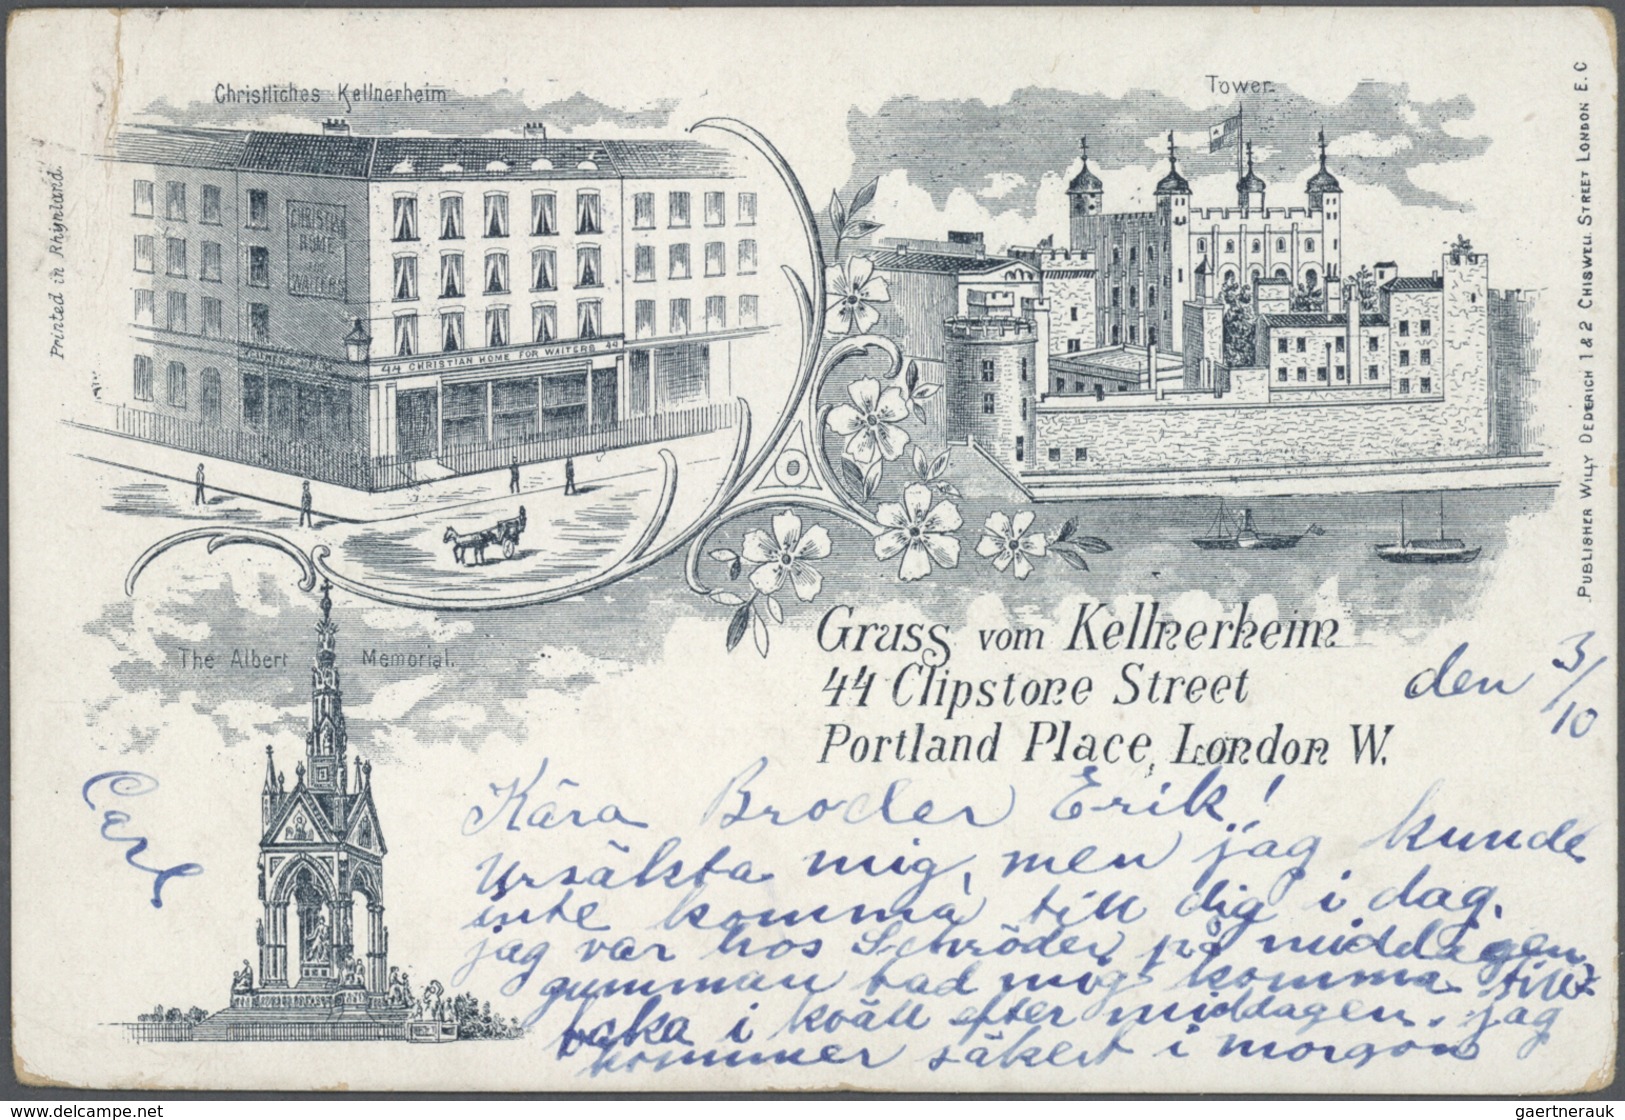 Christliches Kellnerheim
Tower.
Printed in Rhynland.
CHRISTIAN
HOME
FOR
WAITERS
44 CHRISTIAN HOME FOR WAITERS 44
PUBLISHER WILLY DEDERICH 1 & 2 CHISWELL STREET LONDON E.C
The Albert Memorial.
Gruss vom Kellnerheim
44 Clipstone Street
Portland Place, London W.
den 3/10
Carl
Kära Broder Erik!
Ursäkta mig, men jag kunde
inte komma till dig i dag.
jag var hos Schröder på middagen
gumman bad mig komma till-
baka i kväll efter middagen. jag
kommer säkert i morgon
delcampe.net
gaertnerauk